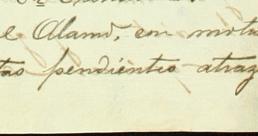 l Alamo, con motu
tas pendientes atraz